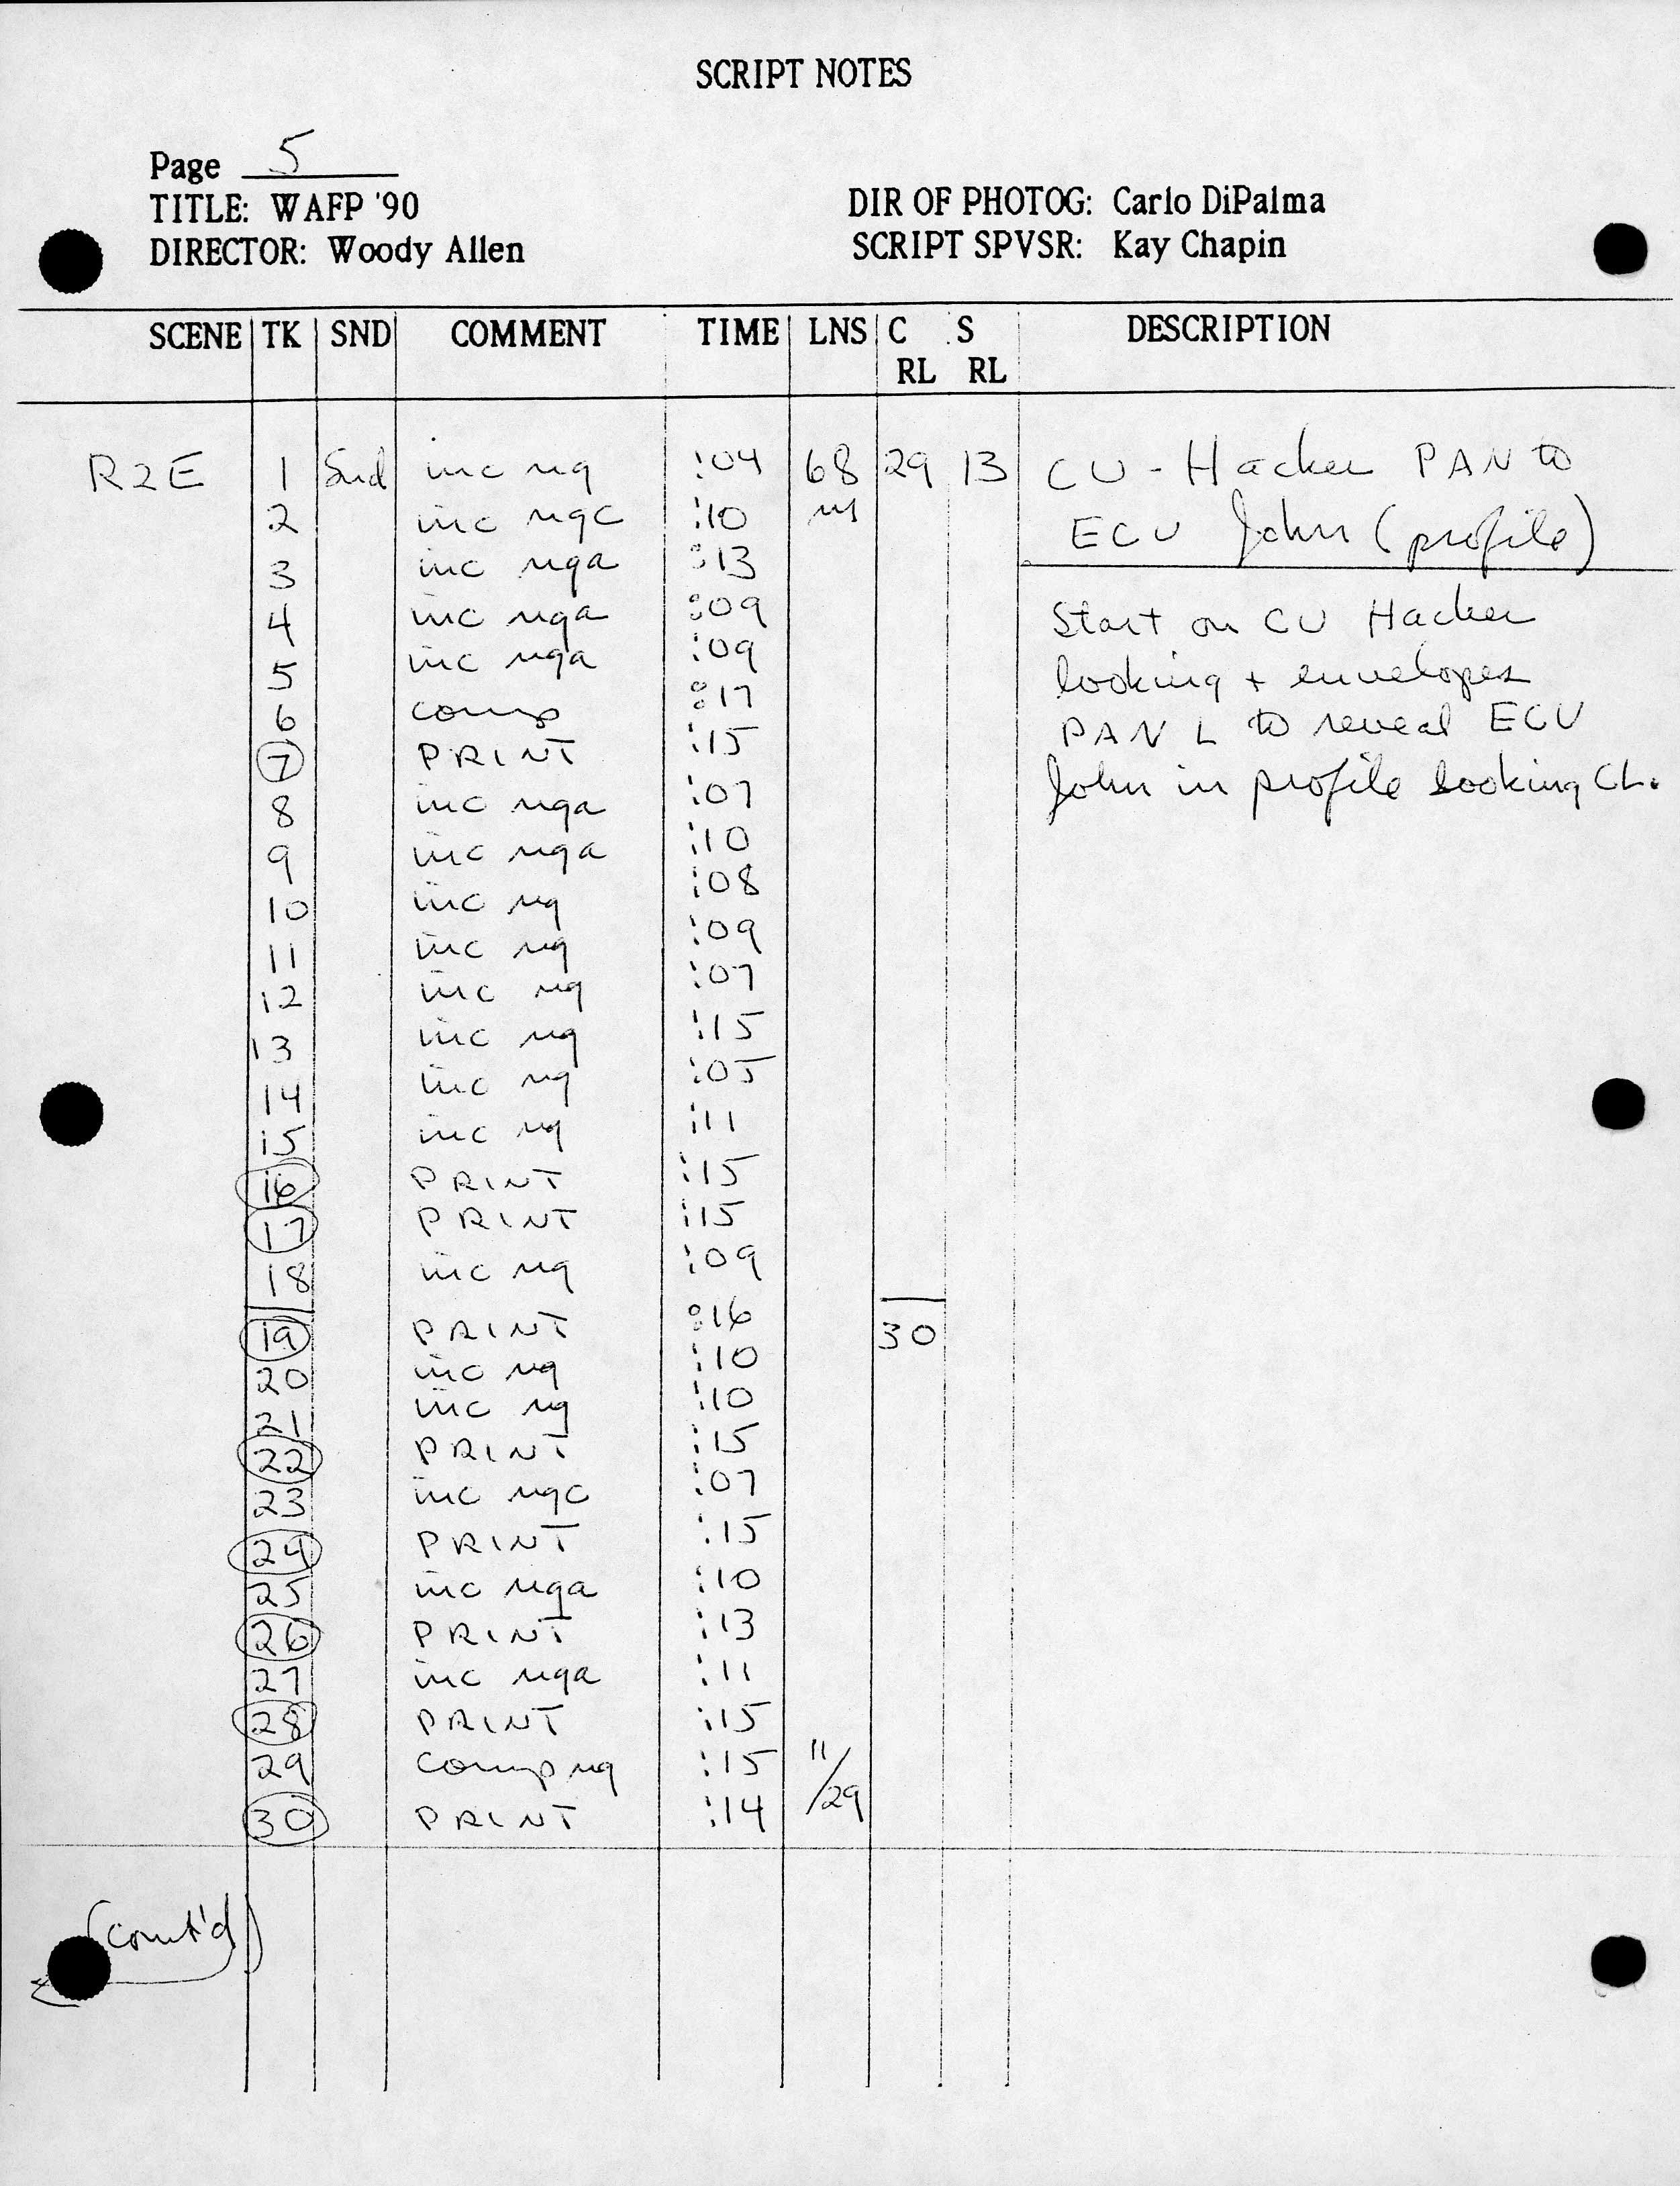 SCRIPT NOTES
Page 5
TITLE: WAFP '90
DIRECTOR: Woody Allen
DIR OF PHOTOG: Carlo DiPalma
SCRIPT SPVSR: Kay Chapin
SCENE TK SND COMMENT TIME LNS C RL S RL DESCRIPTION
R2E 1 Snd inc ng :04 68 29 13 CU - Hacker PAN to
2 inc ngc :10 ECU John (profile)
3 inc nga :13
4 inc nga :09 Start on CU Hacker
5 inc nga :09 looking + envelopes
6 comp :17 PAN L to reveal ECU
7 PRINT :15 John in profile looking CL.
8 inc nga :07
9 inc nga :10
10 inc ng :08
11 inc ng :09
12 inc ng :07
13 inc ng :15
14 inc ng :05
15 inc ng :11
16 PRINT :15
17 PRINT :15
18 inc ng :09
19 PRINT :16 30
20 inc ng :10
21 inc ng :10
22 PRINT :15
23 inc ngc :07
24 PRINT :15
25 inc nga :10
26 PRINT :13
27 inc nga :11
28 PRINT :15
29 comp ng :15 11/29
30 PRINT :14
(cont'd)